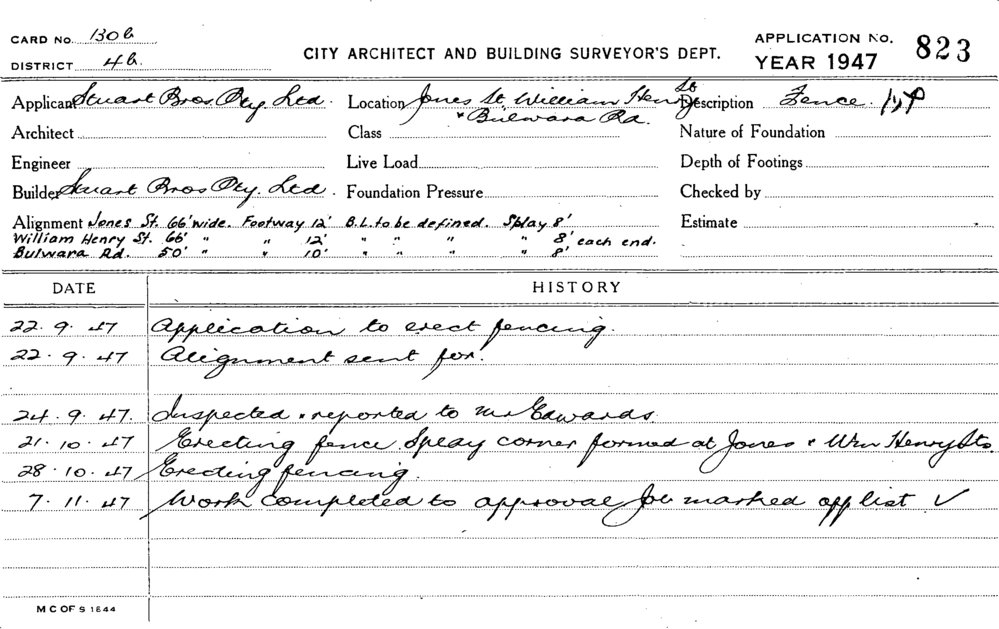 CARD No. 130b
DISTRICT 4b.
CITY ARCHITECT AND BUILDING SURVEYOR'S DEPT.
APPLICATION NO. 823
YEAR 1947
Applicant Stuart Bros Pty. Ltd. Location Jones St. William Henry St Description Fence.
& Bulwara Rd.
Architect Class Nature of Foundation
Engineer Live Load Depth of Footings
Builder Stuart Bros Pty. Ltd. Foundation Pressure Checked by
Alignment Jones St. 66' wide. Footway 12' B.L. to be defined. Splay 8' Estimate
William Henry St. 66' " " 12' " " " " 8' each end.
Bulwara Rd. 50' " " 10' " " " " 8'
DATE HISTORY
22. 9. 47 Application to erect fencing.
22. 9. 47 Alignment sent for.
24. 9. 47. Inspected & reported to Mr Edwards.
21. 10. 47 Erecting fence. Splay corner formed at Jones & Wm Henry Sts.
28. 10. 47 Erecting fencing.
7. 11. 47 Work completed to approval Job marked off list ✓
M C OF S 1844